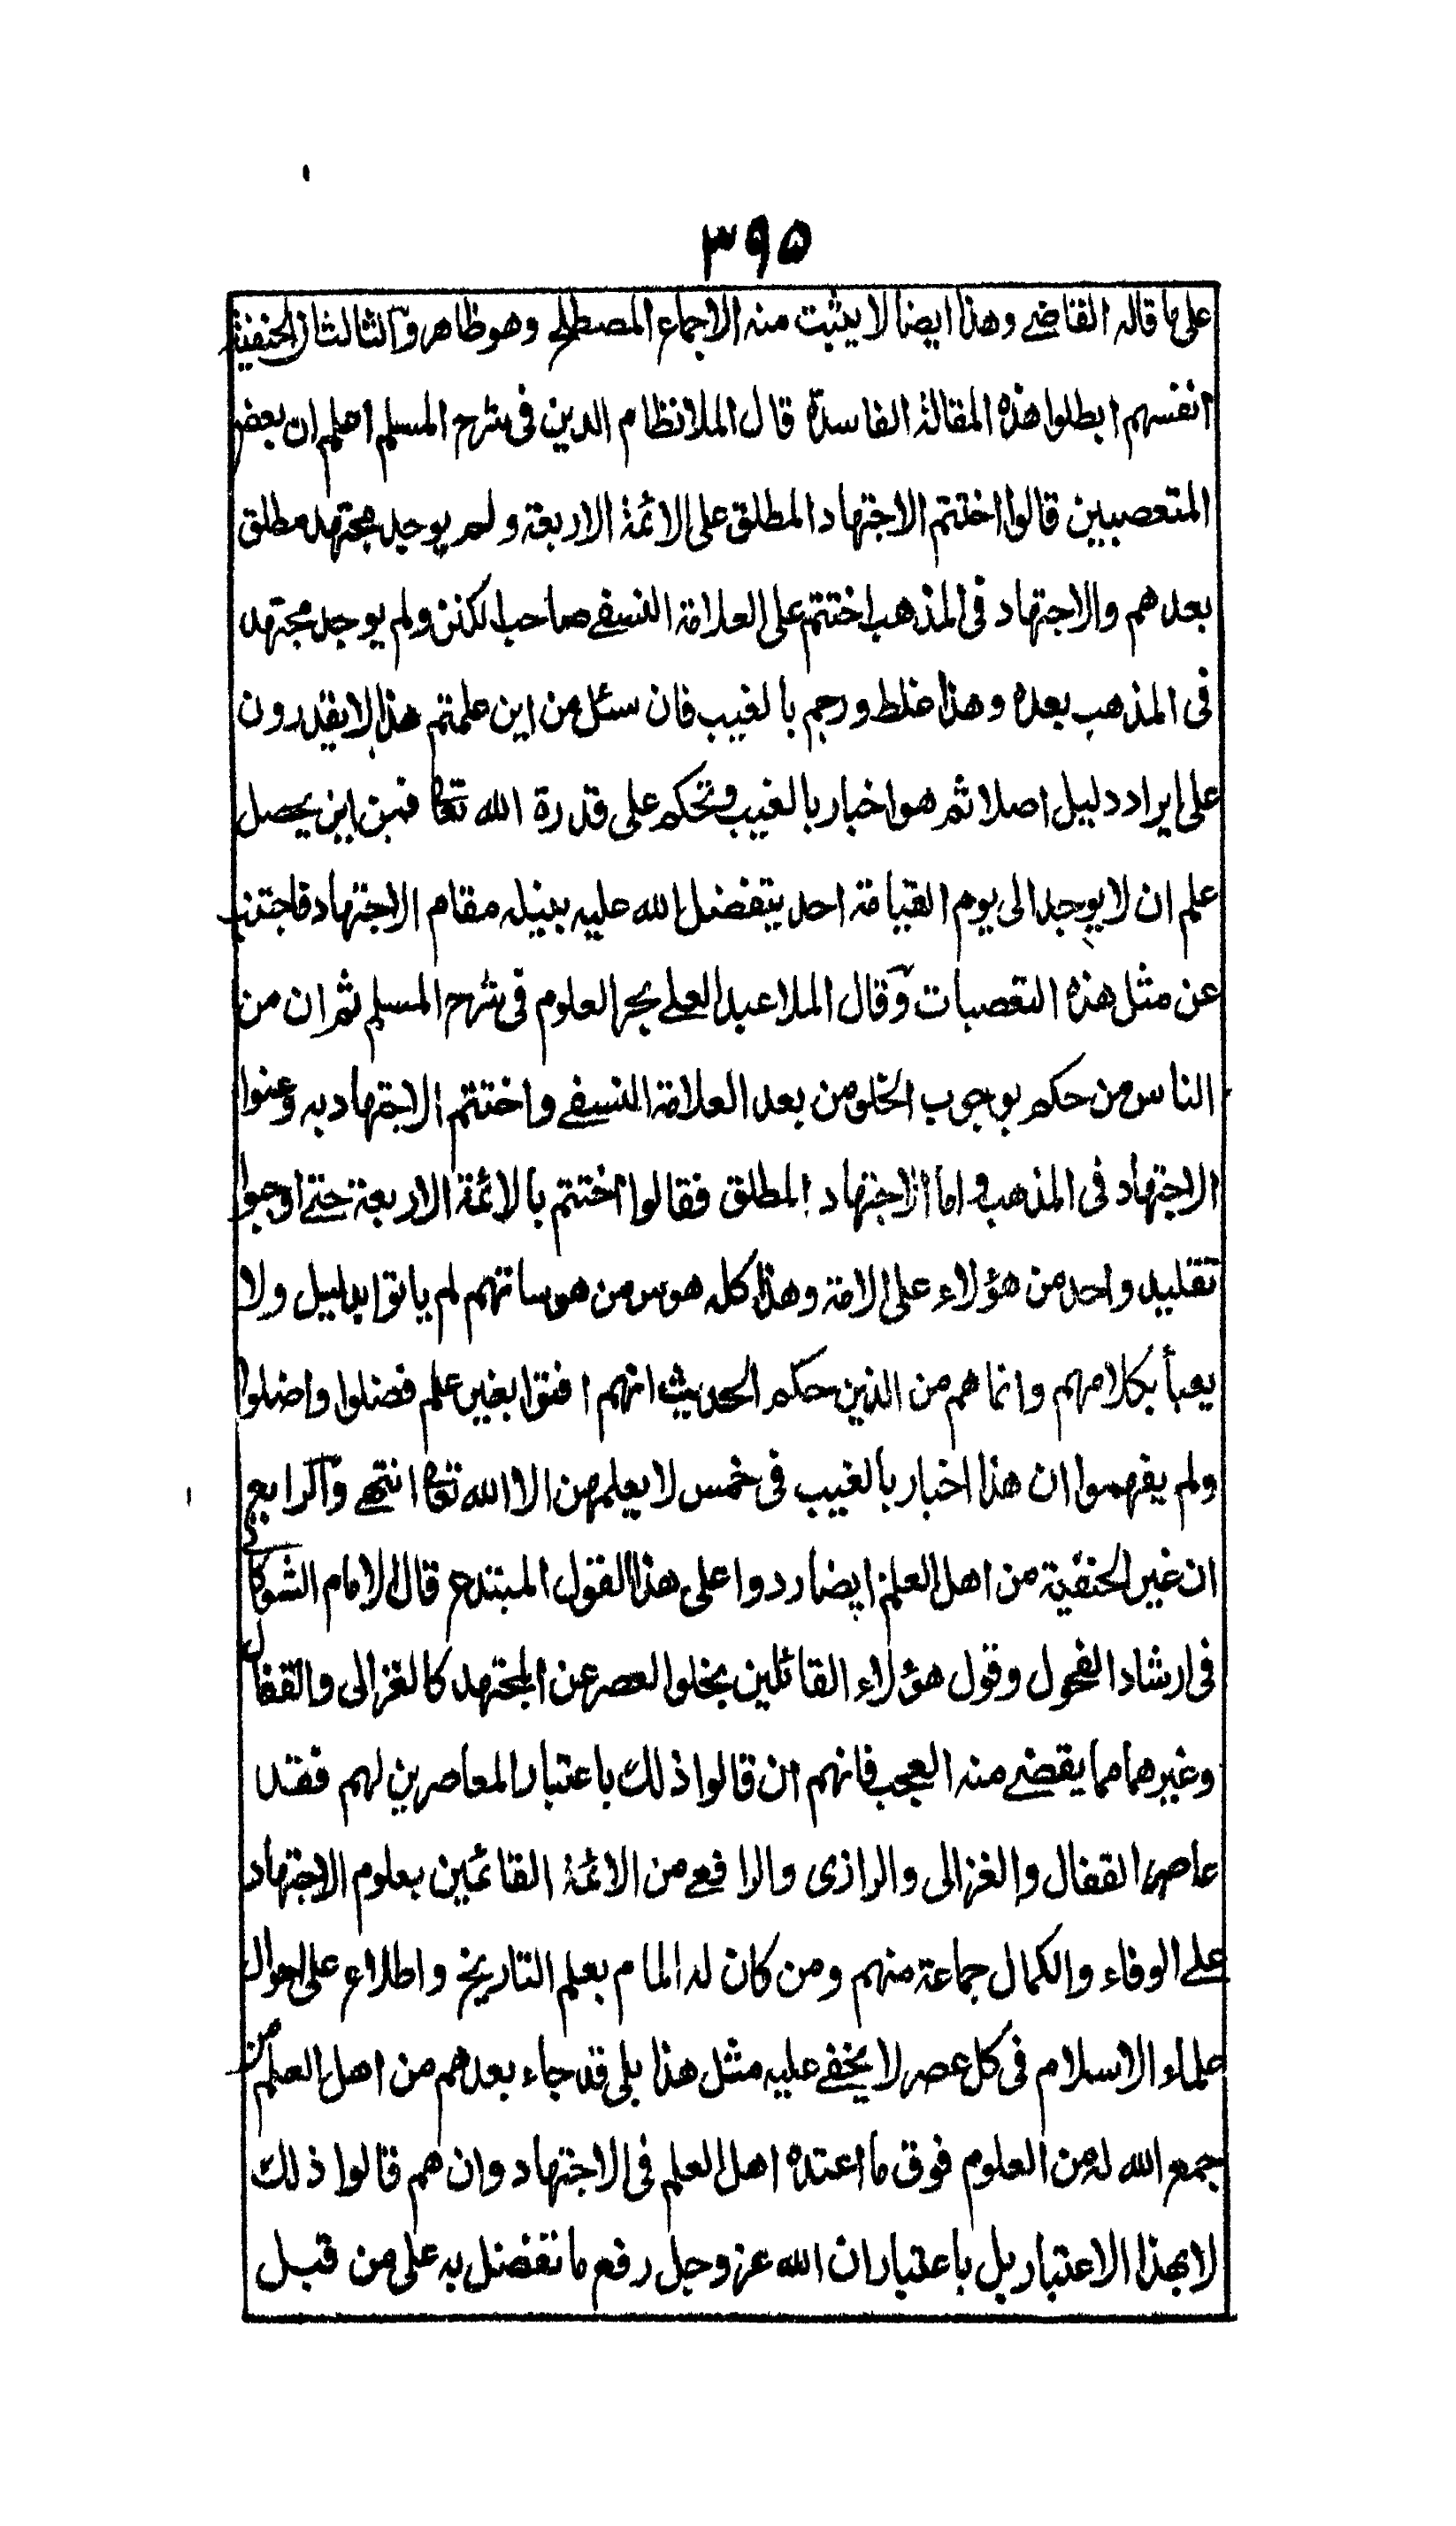 ٣٩٥
على ما قاله القاضے وهذا ايضا لا يثبت منه الاجماع المصطلح وهو ظاهر والثالث ان الحنفية
انفسهم ابطلوا هذه المقالة الفاسدة قال الملا نظام الدين فى شرح المسلم اعلم ان بعض
المتعصبين قالوا اختتم الاجتهاد المطلق على الائمة الاربعة ولم يوجد مجتهد مطلق
بعدهم والاجتهاد فى المذهب اختتم على العلامة النسفے صاحب الكنز ولم يوجد مجتهد
فى المذهب بعده وهذا غلط ورجم بالغيب فان سئل من اين علمتم هذا لا يقدرون
على ايراد دليل اصلا ثم هو اخبار بالغيب وتحكم على قدرة الله تعا فمن اين يحصل
علم ان لا يوجد الى يوم القيامة احد يتفضل الله عليه بنيله مقام الاجتهاد فاجتنب
عن مثل هذه التعصبات وقال الملا عبد العلے بحر العلوم فى شرح المسلم ثم ان من
الناس من حكم بوجوب الخلو من بعد العلامة النسفے واختتم الاجتهاد به وعنوا
الاجتهاد فى المذهب واما الاجتهاد المطلق فقالوا اختتم بالائمة الاربعة حتے اوجبوا
تقليد واحد من هؤلاء على الامة وهذا كله هوس من هوساتهم لم ياتوا بدليل ولا
يعبأ بكلامهم وانما هم من الذين حكم الحديث انهم افتوا بغير علم فضلوا واضلوا
ولم يفهموا ان هذا اخبار بالغيب فى خمس لا يعلمهن الا الله تعا انتهے والرابع
ان غير الحنفية من اهل العلم ايضا ردوا على هذا القول المبتدع قال الامام الشوكانے
فى ارشاد الفحول وقول هؤلاء القائلين بخلو العصر عن المجتهد كالغزالى والقفال
وغيرهما مما يقضے منه العجب فانهم ان قالوا ذلك باعتبار المعاصرين لهم فقد
عاصر القفال والغزالى والرازى والرافعے من الائمة القائمين بعلوم الاجتهاد
علے الوفاء والكمال جماعة منهم ومن كان له المام بعلم التاريخ واطلاع على احوال
علماء الاسلام فى كل عصر لا يخفے عليه مثل هذا بلى قد جاء بعدهم من اهل العلم من
جمع الله له من العلوم فوق ما اعتده اهل العلم فى الاجتهاد وان هم قالوا ذلك
لا بهذا الاعتبار بل باعتبار ان الله عز وجل رفع ما تفضل به على من قبل